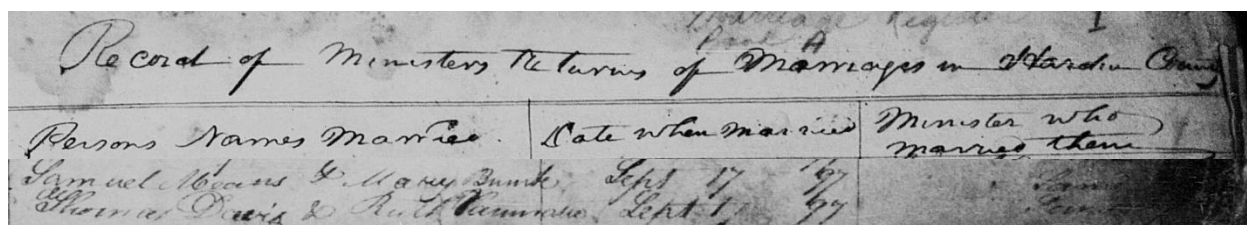 Marriage Register 1
Book A
Record of Ministers Returns of Marriages in Hardin County
Persons Names Married. Date when married Minister who married them
Samuel Means & Mary Sept 17 97 Same
Thomas Davis & Ruth Sept 97 Same